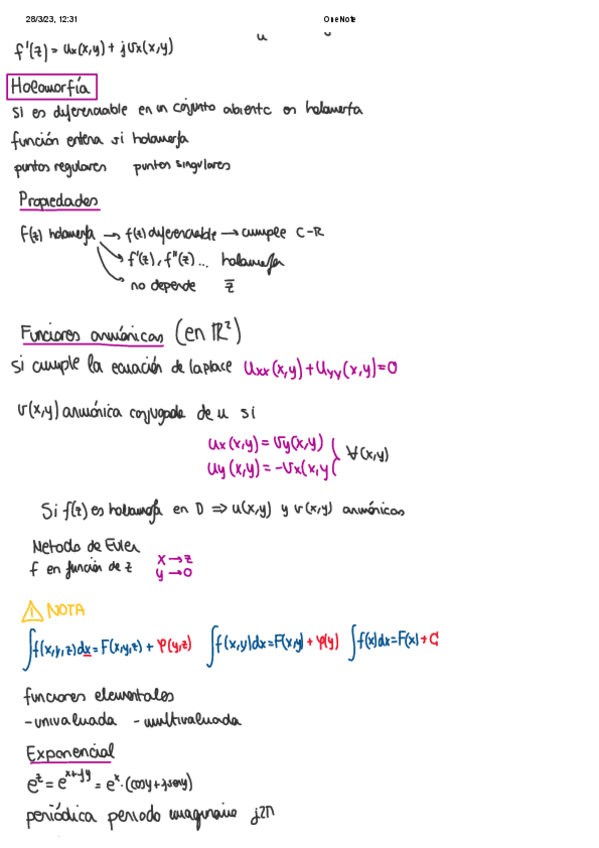 28/3/23, 12:31 OneNote
f'(z) = ux(x,y) + j vx(x,y)
Holomorfía
si es diferenciable en un conjunto abierto es holomorfa
función entera si holomorfa
puntos regulares puntos singulares
Propiedades
f(z) holomorfa → f(z) diferenciable → cumple C-R
f'(z), f''(z)... holomorfa
no depende z̅
Funciones armónicas (en ℝ²)
si cumple la ecuación de laplace uxx(x,y)+uyy(x,y)=0
v(x,y) armónica conjugada de u si
ux(x,y) = vy(x,y)
uy(x,y) = -vx(x,y( ∀(x,y)
Si f(z) es holomorfa en D ⇒ u(x,y) y v(x,y) armónicas
Metodo de Euler
f en función de z x→z
y→0
⚠ NOTA
∫f(x,y,z)dx = F(x,y,z) + φ(y,z) ∫f(x,y)dx=F(x,y)+φ(y) ∫f(x)dx=F(x)+C
funciones elementales
-univaluada -multivaluada
Exponencial
e^z = e^x+jy = e^x·(cosy+jseny)
periódica periodo imaginario j2π